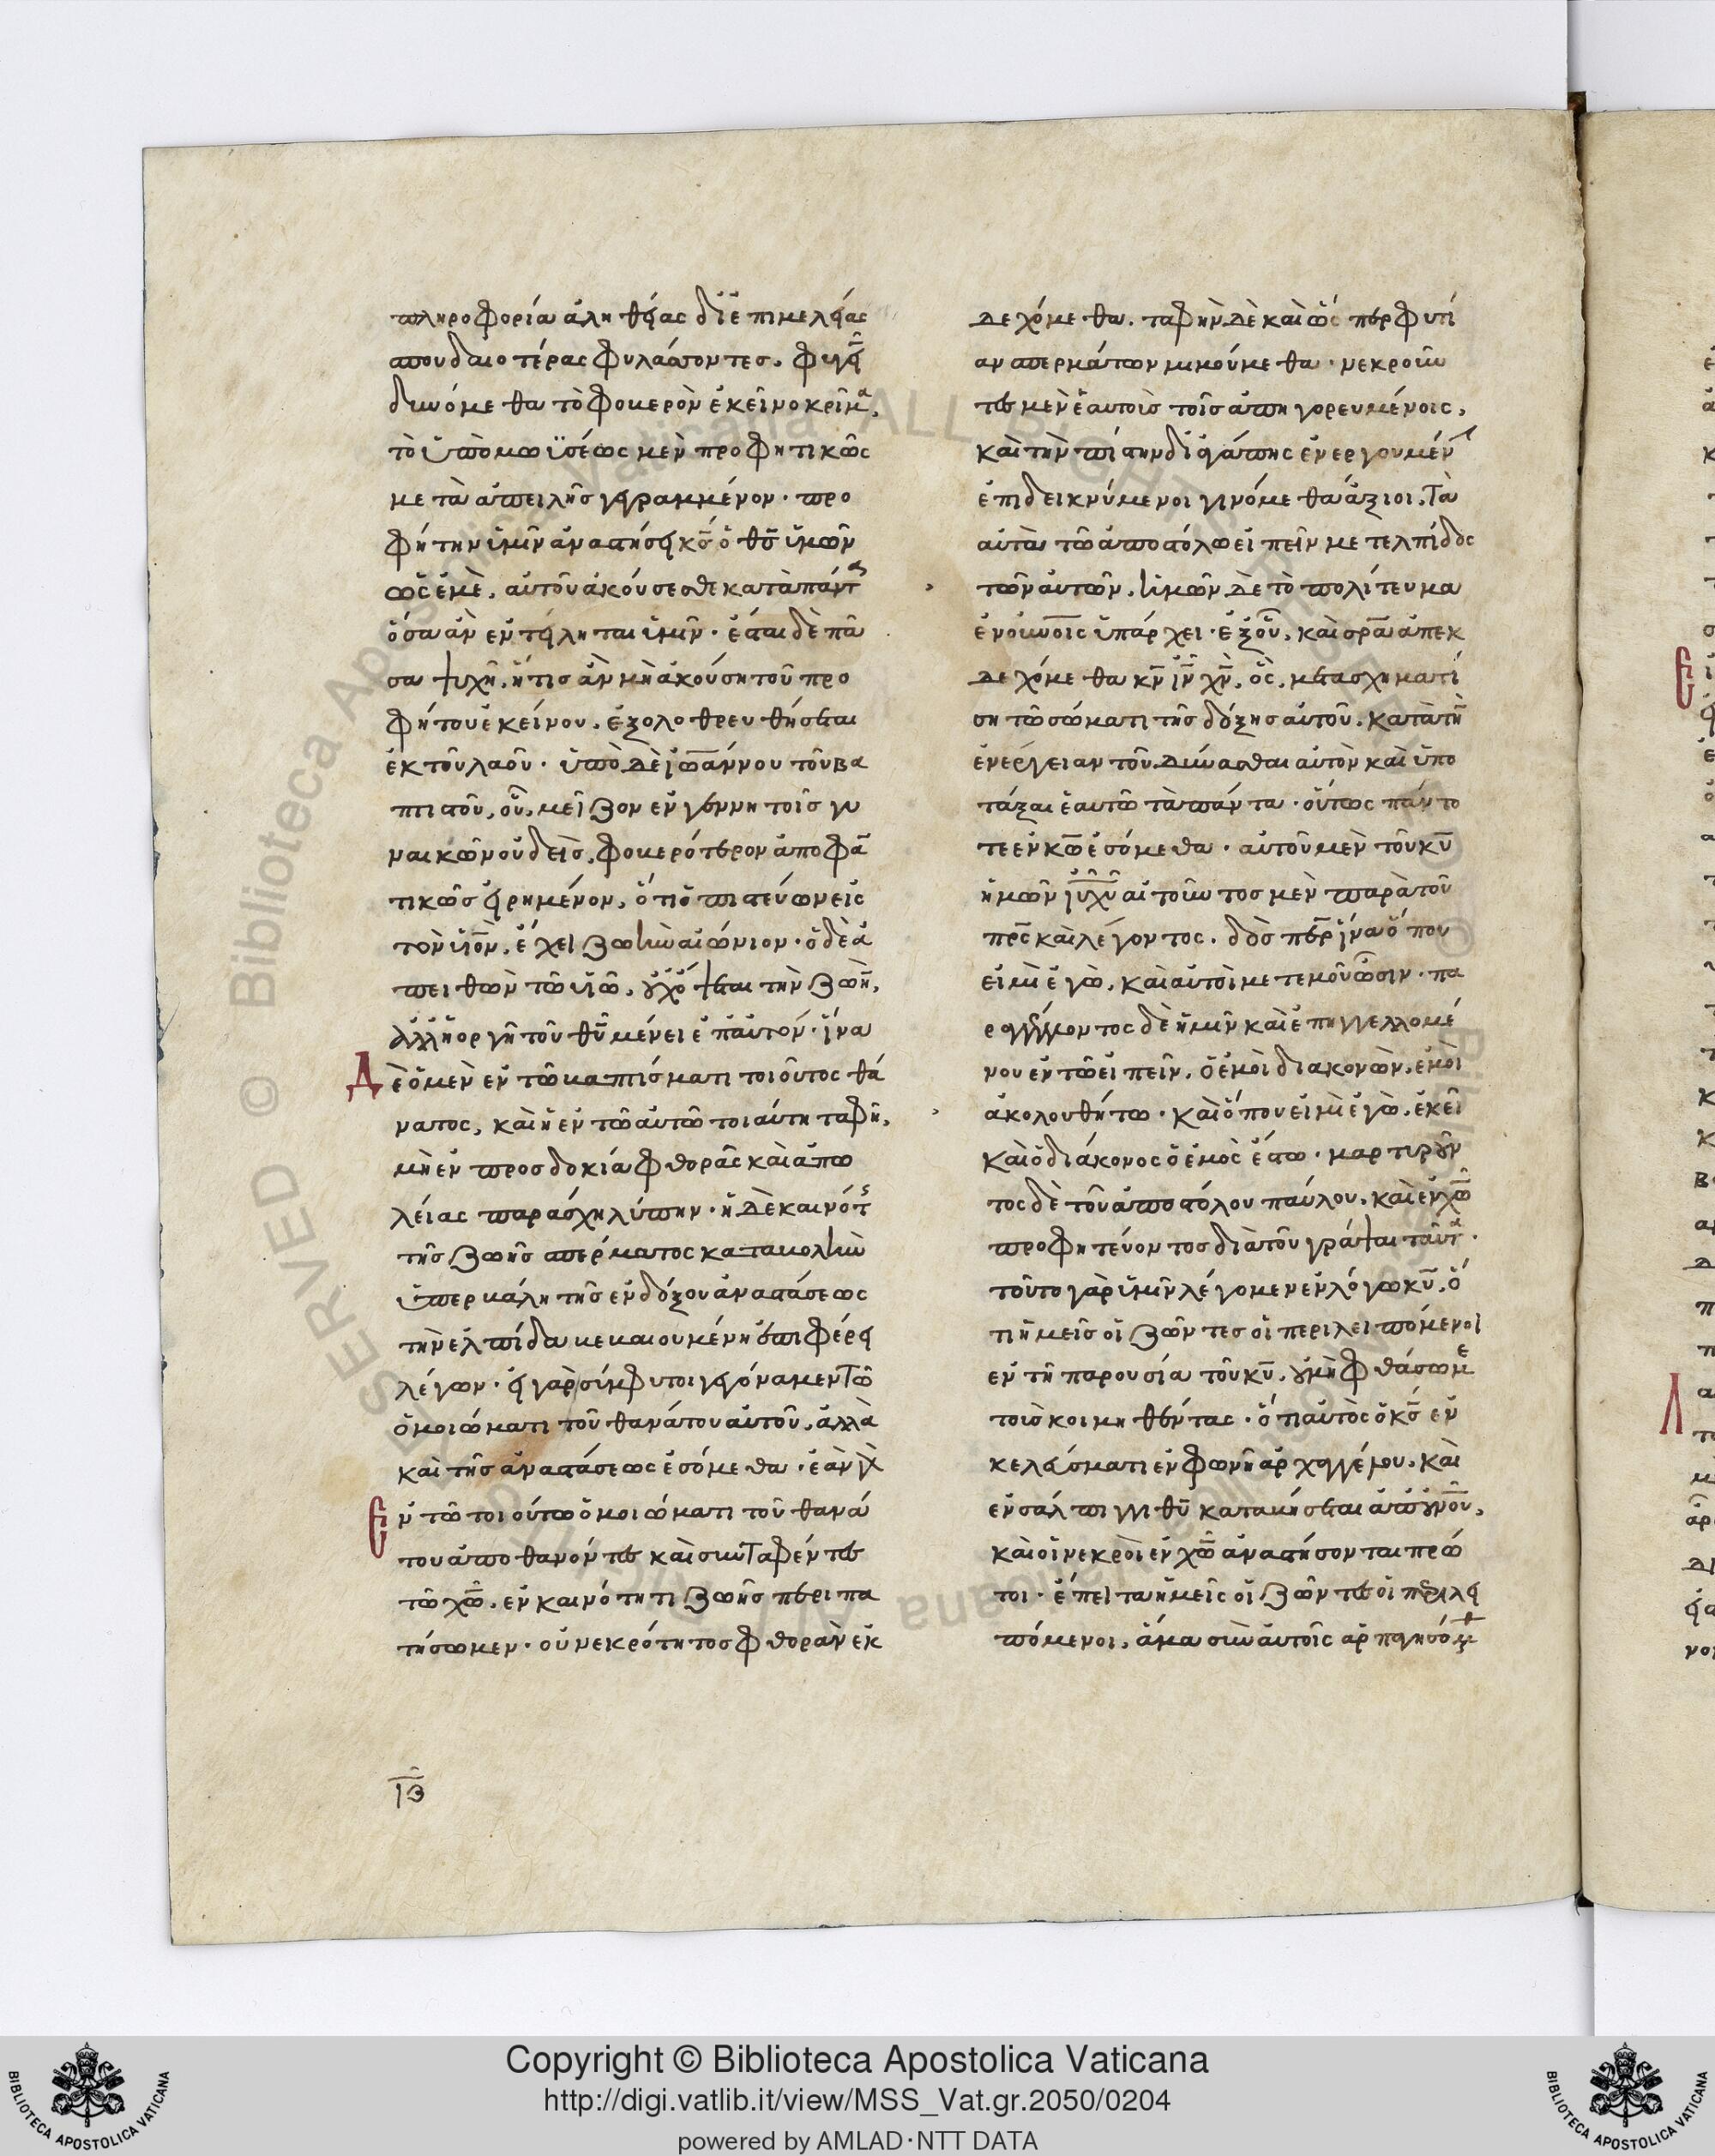 πληροφορία ἀληθείας δι' ἐπιμελείας
σπουδαιοτέρας φυλάσσοντες. φυγεῖν
δυνώμεθα τὸ φοβερὸν ἐκεῖνο κρῖμα,
τὸ ὑπὸ μωϋσέως μὲν προφητικῶς
μετὰ ἀπειλῆς γεγραμμένον· προ
φήτην ὑμῖν ἀναστήσει κς ὁ θς ὑμῶν
ὡς ἐμὲ, αὐτοῦ ἀκούσεσθε κατὰ πάντα
ὅσα ἂν ἐντείληται ὑμῖν· ἔσται δὲ πᾶ
σα ψυχὴ, ἥτις ἂν μὴ ἀκούση τοῦ προ
φήτου ἐκείνου, ἐξολοθρευθήσεται
ἐκ τοῦ λαοῦ· ὑπὸ δὲ ἰωάννου τοῦ βα
πτιστοῦ, οὗ, μεῖζον ἐν γεννητοῖς γυ
ναικῶν οὐδεὶς, φοβερώτερον ἀποφα
τικῶς εἰρημένον, ὅτι ὁ πιστεύων εἰς
τὸν υἱὸν, ἔχει ζωὴν αἰώνιον· ὁ δὲ ἀ
πειθῶν τῶ υἱῶ, οὐχ ὄψεται τὴν ζωὴν,
ἀλλ' ἡ ὀργὴ τοῦ θυ μένει ἐπ' αὐτόν· ἵνα
Δὲ ὁ μὲν ἐν τῶ βαπτίσματι τοιοῦτος θά
νατος, καὶ ἡ ἐν τῶ αὐτῶ τοιαύτη ταφὴ,
μὴ ἐν προσδοκία φθορᾶς καὶ ἀπω
λείας παράσχη λύπην· ἡ δὲ καινότης
τῆς ζωῆς σπέρματος καταβολὴν
ὑπερβάλη τῆς ἐνδόξου ἀναστάσεως
τὴν ἐλπίδα βεβαιουμένη ἐπιφέρει
λέγων· εἰ γὰρ σύμφυτοι γεγόναμεν τῶ
ὁμοιώματι τοῦ θανάτου αὐτοῦ, ἀλλὰ
καὶ τῆς ἀναστάσεως ἐσόμεθα· ἐὰν γὰρ
Ἐν τῶ τοιούτω ὁμοιώματι τοῦ θανά
του ἀποθανόντες καὶ συνταφέντες
τῶ χω, ἐν καινότητι ζωῆς περιπα
τήσωμεν· οὐ νεκρότητος φθορὰν ἐκ
ιβ
δεχόμεθα. ταφὴν δὲ καὶ ὥσπερ φυτί
αν σπερμάτων μιμούμεθα· νεκροῦν
τες μὲν ἑαυτοὺς τοῖς ἀπηγορευμένοις,
καὶ τὴν πίστιν δι' ἀγάπης ἐνεργουμένην
ἐπιδεικνύμενοι γινόμεθα ἄξιοι. Τὰ
αὐτὰ τῶ ἀποστόλω εἰπεῖν μετ' ἐλπίδος
τῶν αὐτῶν, ἡμῶν δὲ τὸ πολίτευμα
ἐν οὐνοῖς ὑπάρχει· ἐξ οὗ, καὶ σρα ἀπεκ
δεχόμεθα κν ιν χν, ὃς, μετασχηματί
ση τῶ σώματι τῆς δόξης αὐτοῦ. κατὰ τὴν
ἐνέργειαν τοῦ δύνασθαι αὐτὸν καὶ ὑπο
τάξαι ἑαυτῶ τὰ πάντα· οὕτως πάντο
τε ἐν κω ἐσόμεθα· αὐτοῦ μὲν τοῦ κυ
ἡμῶν ιυ χυ αἰτοῦντος μὲν παρὰ τοῦ
πρς καὶ λέγοντος. δὸς περ ἵνα ὅπου
εἰμὶ ἐγὼ, καὶ αὐτοὶ μετ' ἐμοῦ ὦσιν· πα
ραγγέλλοντος δὲ ἡμῖν καὶ ἐπηγγελλομέ
νου ἐν τῶ εἰπεῖν, ὁ ἐμοὶ διακονῶν, ἐμοὶ
ἀκολουθήτω· καὶ ὅπου εἰμὶ ἐγὼ, ἐκεῖ
καὶ ὁ διάκονος ὁ ἐμὸς ἔστω· μαρτυροῦν
τος δὲ τοῦ ἀποστόλου παύλου, καὶ ἐν χω
προφητεύοντος διὰ τοῦ γράψαι ταῦτα·
τοῦτο γὰρ ὑμῖν λέγομεν ἐν λόγω κυ, ὅ
τι ἡμεῖς οἱ ζῶντες οἱ περιλειπόμενοι
ἐν τῆ παρουσία τοῦ κυ, οὐ μὴ φθάσωμεν
τοὺς κοιμηθέντας· ὅτι αὐτὸς ὁ κς ἐν
κελεύσματι ἐν φωνῆ ἀρχαγγέλου. καὶ
ἐν σάλπιγγι θυ καταβήσεται ἀπ' οὐνοῦ,
καὶ οἱ νεκροὶ ἐν χω ἀναστήσονται πρῶ
τοι· ἔπειτα ἡμεῖς οἱ ζῶντες οἱ περιλει
πόμενοι, ἅμα σὺν αὐτοῖς ἁρπαγησόμεθα
Copyright © Biblioteca Apostolica Vaticana
http://digi.vatlib.it/view/MSS_Vat.gr.2050/0204
powered by AMLAD·NTT DATA
BIBLIOTECA APOSTOLICA VATICANA
BIBLIOTECA APOSTOLICA VATICANA